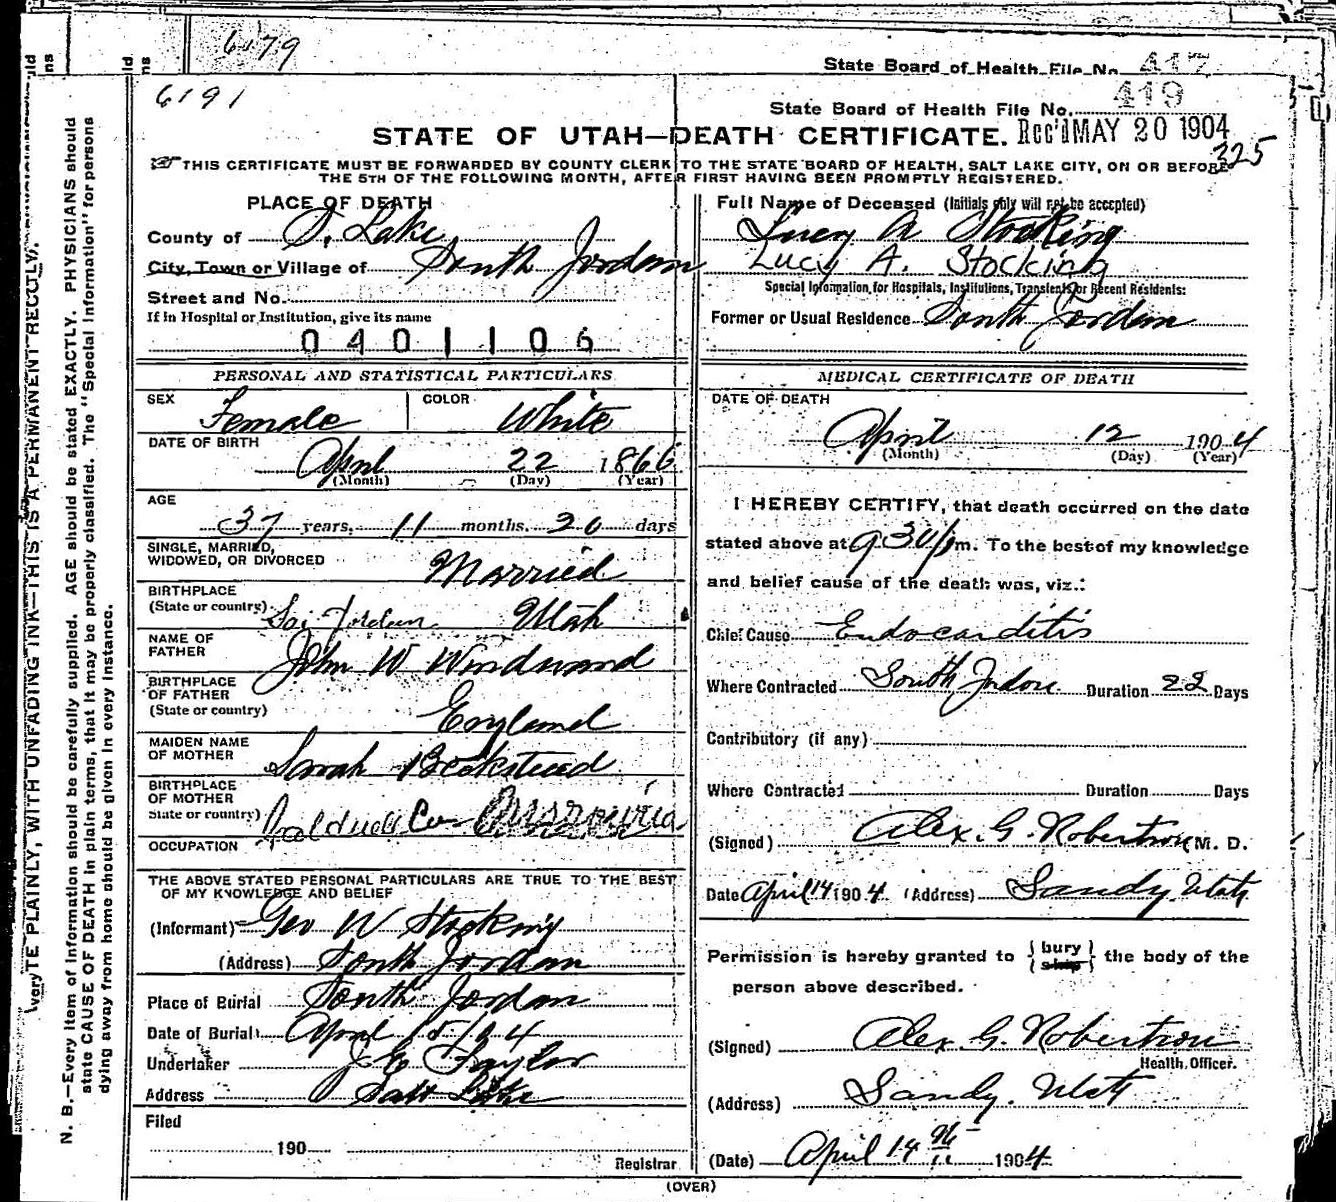 6179
State Board of Health File No. 417
6191
State Board of Health File No. 419
STATE OF UTAH—DEATH CERTIFICATE. Rec'd MAY 20 1904
325
THIS CERTIFICATE MUST BE FORWARDED BY COUNTY CLERK TO THE STATE BOARD OF HEALTH, SALT LAKE CITY, ON OR BEFORE
THE 5TH OF THE FOLLOWING MONTH, AFTER FIRST HAVING BEEN PROMPTLY REGISTERED.
PLACE OF DEATH
County of S. Lake
City, Town or Village of South Jordan
Street and No.
If in Hospital or Institution, give its name
0401106
PERSONAL AND STATISTICAL PARTICULARS
SEX Female COLOR White
DATE OF BIRTH
April 22 1866
(Month) (Day) (Year)
AGE
37 years, 11 months, 20 days
SINGLE, MARRIED,
WIDOWED, OR DIVORCED Married
BIRTHPLACE
(State or country) So. Jordan Utah
NAME OF
FATHER John W
BIRTHPLACE
OF FATHER
(State or country) England
MAIDEN NAME
OF MOTHER Sarah Beckstead
BIRTHPLACE
OF MOTHER
State or country) Caldwell Co Missouria
OCCUPATION
THE ABOVE STATED PERSONAL PARTICULARS ARE TRUE TO THE BEST
OF MY KNOWLEDGE AND BELIEF
(Informant) Geo W Stocking
(Address) South Jordan
Place of Burial South Jordan
Date of Burial April
Undertaker Taylor
Address Salt Lake
Filed
190
Registrar
Full Name of Deceased (Initials only will not be accepted)
Lucy A Stocking
Lucy A. Stocking
Special Information for Hospitals, Institutions, Transients or Recent Residents:
Former or Usual Residence South Jordan
MEDICAL CERTIFICATE OF DEATH
DATE OF DEATH
April 12 1904
(Month) (Day) (Year)
I HEREBY CERTIFY, that death occurred on the date
stated above at 9.30 p m. To the best of my knowledge
and belief cause of the death was, viz.:
Chief Cause Endocarditis
Where Contracted South Jordan Duration 22 Days
Contributory (if any)
Where Contracted Duration Days
(Signed) Alex. G. Robertson M. D.
Date April 14 1904 (Address) Sandy Utah
Permission is hereby granted to { bury } the body of the
{ ship }
person above described.
(Signed) Alex. G. Robertson
Health Officer.
(Address) Sandy. Utah
(Date) April 14 th 1904
(OVER)
N. B.—Every item of information should be carefully supplied. AGE should be stated EXACTLY. PHYSICIANS should
state CAUSE OF DEATH in plain terms, that it may be properly classified. The "Special Information" for persons
dying away from home should be given in every instance.
PLAINLY, WITH UNFADING INK—THIS IS A PERMANENT RECORD.